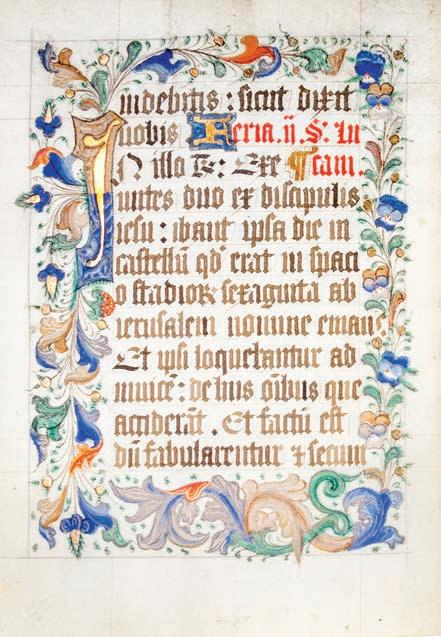 uidebitis : sicut dixit
uobis Feria .ij. S: Lu
IN illo T: Exe ¶ cam .
untes duo ex discipulis
iesu : ibant ipsa die in
castellū qd' erat in spaci
o stadioꝝ sexaginta ab
ierusalem nomine emaus
Et ipsi loquebantur ad
inuicē : de hiis oībus que
acciderāt . Et factū est
dū fabularentur ⁊ secum